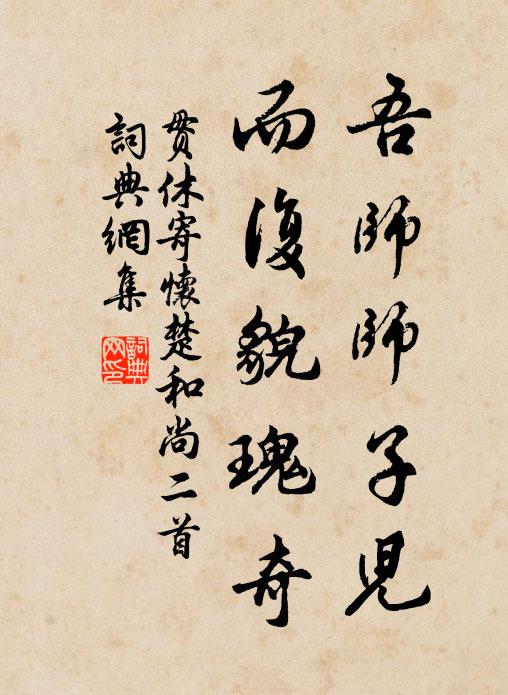 吾師師子兒
而復貌瑰奇
貫休寄懷楚和尚二首
詞典網集
詞典网印